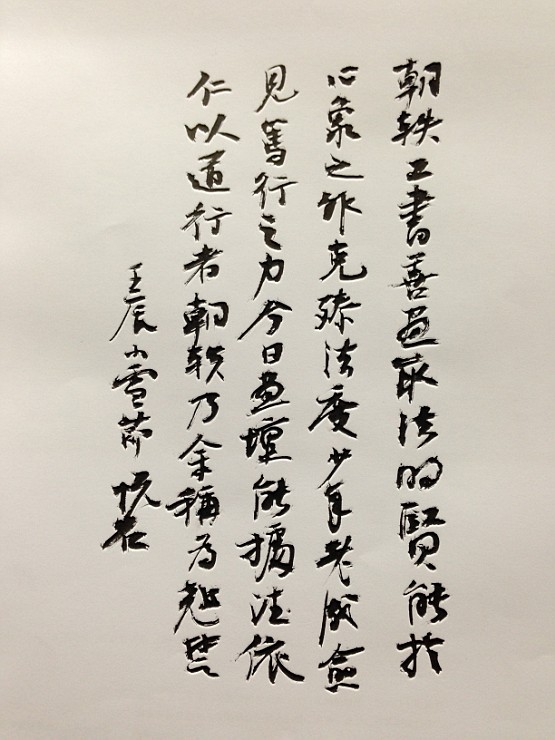 朝轶工书善画取法明贤能于
心象之外克臻法度少年老成愈
见笃行之力今日画坛能據法依
仁以道行者朝轶乃余稱为翘楚
壬辰小雪节 悦石